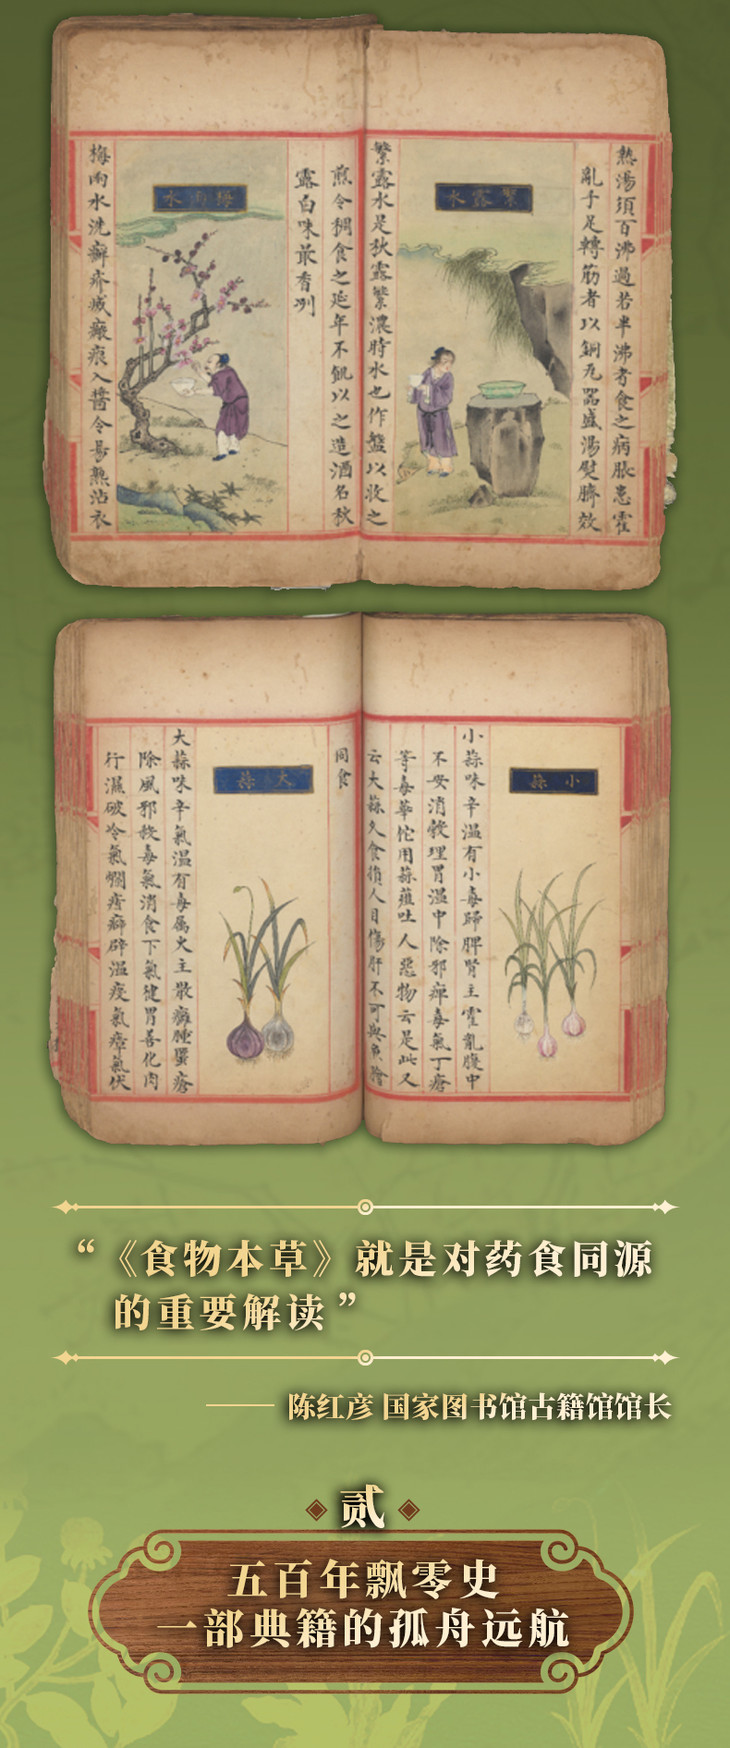 熱湯須百沸過若半沸者食之病脹患霍
亂手足轉筋者以銅瓦器盛湯熨臍效
繁露水
繁露水是秋露繁濃時水也作盤以收之
煎令稠食之延年不飢以之造酒名秋
露白味最香冽
梅雨水
梅雨水洗癬疥滅瘢痕入醬令易熟沾衣
小蒜
小蒜味辛溫有小毒歸脾腎主霍亂腹中
不安消穀理胃溫中除邪痹毒氣丁瘡
等毒華佗用蒜虀吐人惡物云是此又
云大蒜久食損人目傷肝不可與魚膾
同食
大蒜
大蒜味辛氣溫有毒属火主散癰腫䘌瘡
除風邪殺毒氣消食下氣健胃善化肉
行濕破冷氣爛痃癖辟溫疫氣瘴氣伏
“《食物本草》就是对药食同源
的重要解读”
—— 陈红彦 国家图书馆古籍馆馆长
贰
五百年飘零史
一部典籍的孤舟远航